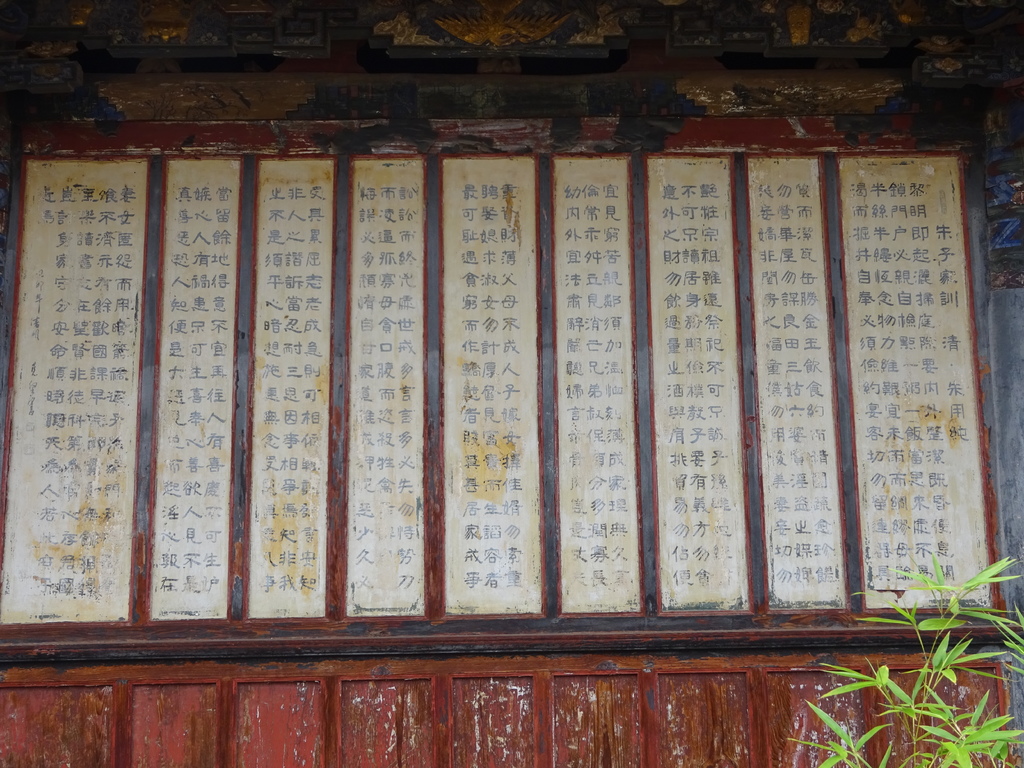 朱子家訓 清 朱用純
黎明即起灑掃庭除要內外整潔既昏便息關
鎖門户必親自檢點一粥一飯當思來處不易
半絲半縷恆念物力維艱宜未雨而綢繆毋臨
渴而掘井自奉必須儉約宴客切勿留連器具
質而潔瓦缶勝金玉飲食約而精園蔬愈珍饈
勿營華屋勿謀良田三姑六婆實淫盜之媒婢
美妾嬌非閨房之福童僕勿用俊美妻妾切勿
艷粧宗祖雖遠祭祀不可不誠子孫雖愚經書
不可不讀居身務期儉樸教子要有義方勿貪
意外之財勿飲過量之酒與肩挑貿易勿佔便
宜見窮苦親鄰須加溫恤刻薄成家理無久享
倫常乖舛立見消亡兄弟叔侄須分多潤寡長
幼內外宜法肅辭嚴聽婦言乖骨肉豈是丈夫
重資財薄父母不成人子嫁女擇佳婿勿索重
聘娶媳求淑女勿計厚奩見富貴而生諂容者
最可恥遇貧窮而作驕態者賤莫甚居家戒爭
訟訟則終凶處世戒多言言多必失勿恃勢力
而凌逼孤寡毋貪口腹而恣殺牲禽乖僻自是
悔誤必多頹惰自甘家道難成狎昵惡少久必
受其累屈志老成急則可相依輕聽發言安知
非人之譖訴當忍耐三思因事相爭焉知非我
之不是須平心暗想施惠無念受恩莫忘凡事
當留餘地得意不宜再往人有喜慶不可生妒
嫉心人有禍患不可生喜幸心善欲人見不是
真善惡恐人知便是大惡見色而起淫心報在
妻女匿怨而用暗箭禍延子孫家門和順雖饔
飧不濟亦有餘歡國課早完即囊橐無餘自得
至樂讀書志在聖賢非徒科第為官心存君國
豈計身家守分安命順時聽天為人若此庶乎
近焉